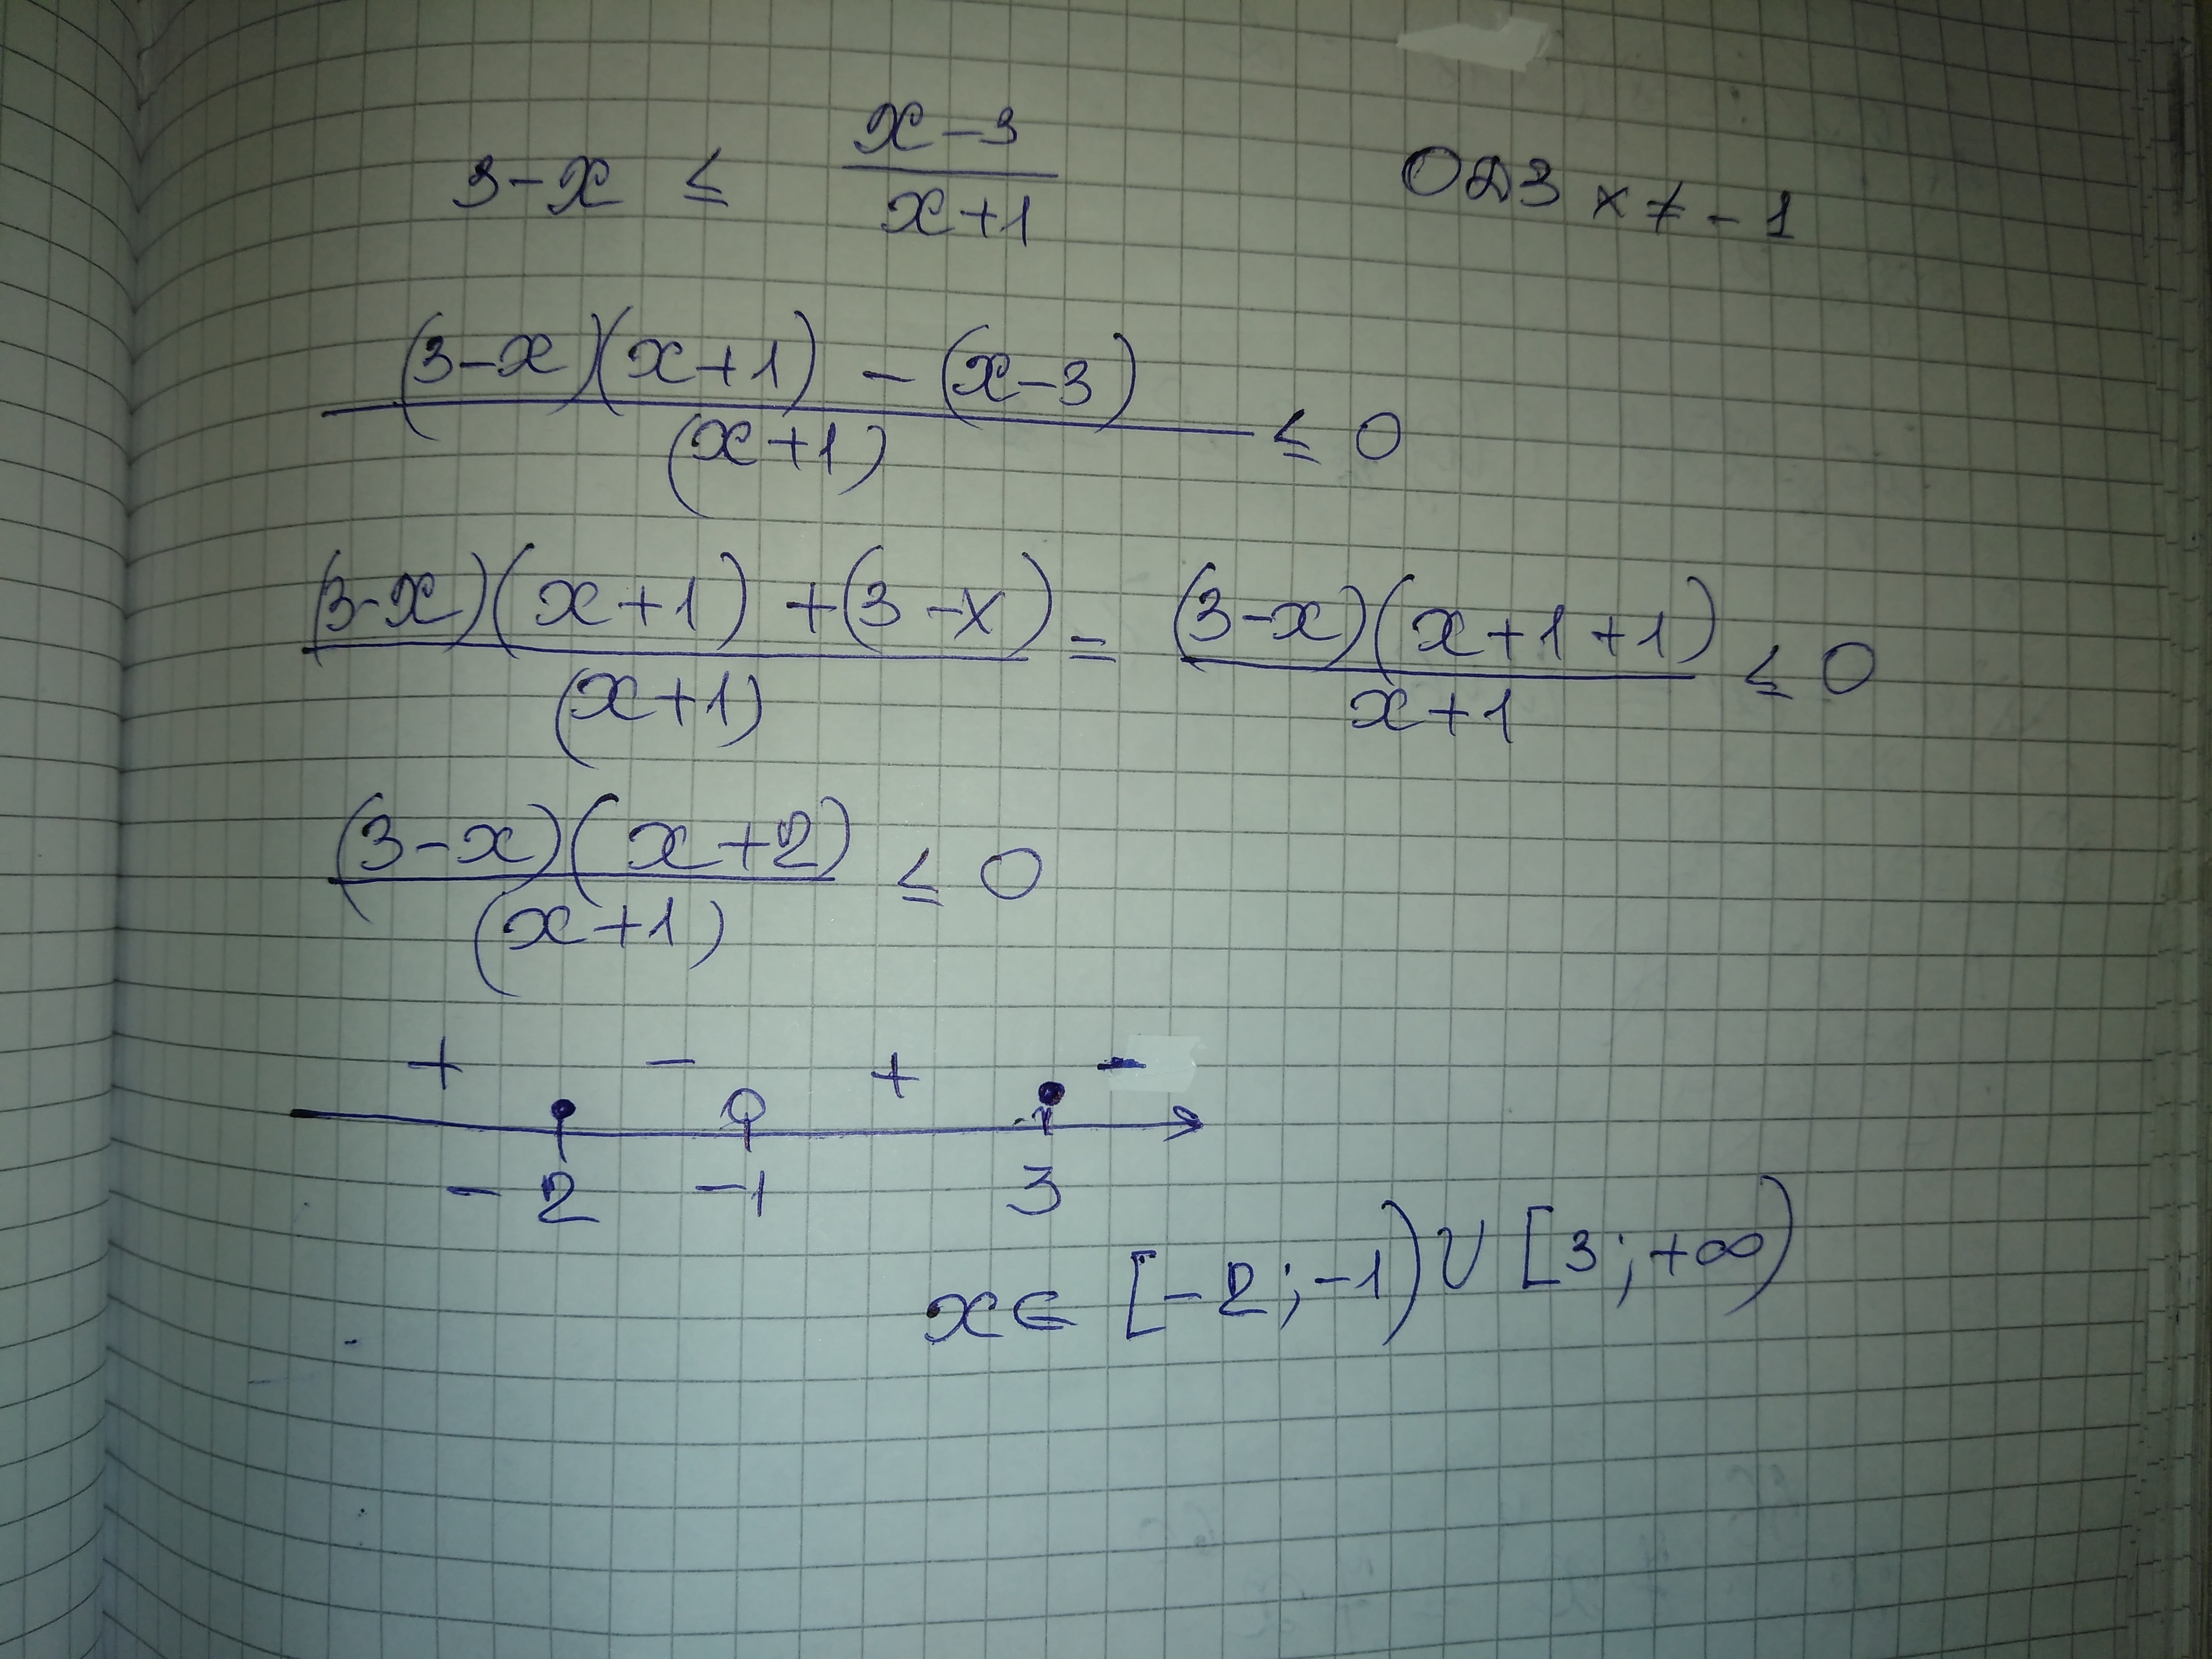 3-x ≤ \frac{x-3}{x+1} ОДЗ x ≠ -1
\frac{(3-x)(x+1) - (x-3)}{(x+1)} ≤ 0
\frac{(3-x)(x+1) + (3-x)}{(x+1)} = \frac{(3-x)(x+1+1)}{x+1} ≤ 0
\frac{(3-x)(x+2)}{(x+1)} ≤ 0
+ - + -
-2 -1 3
x ∈ [-2; -1) ∪ [3; +∞)